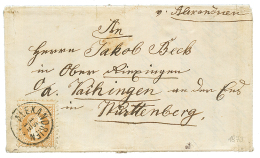 v. Alexandrien
An
Herrn Jakob Beck
in Ober Riexingen
O/a. Vaihingen an der Enz
in Württemberg.
ALEXANDRIE